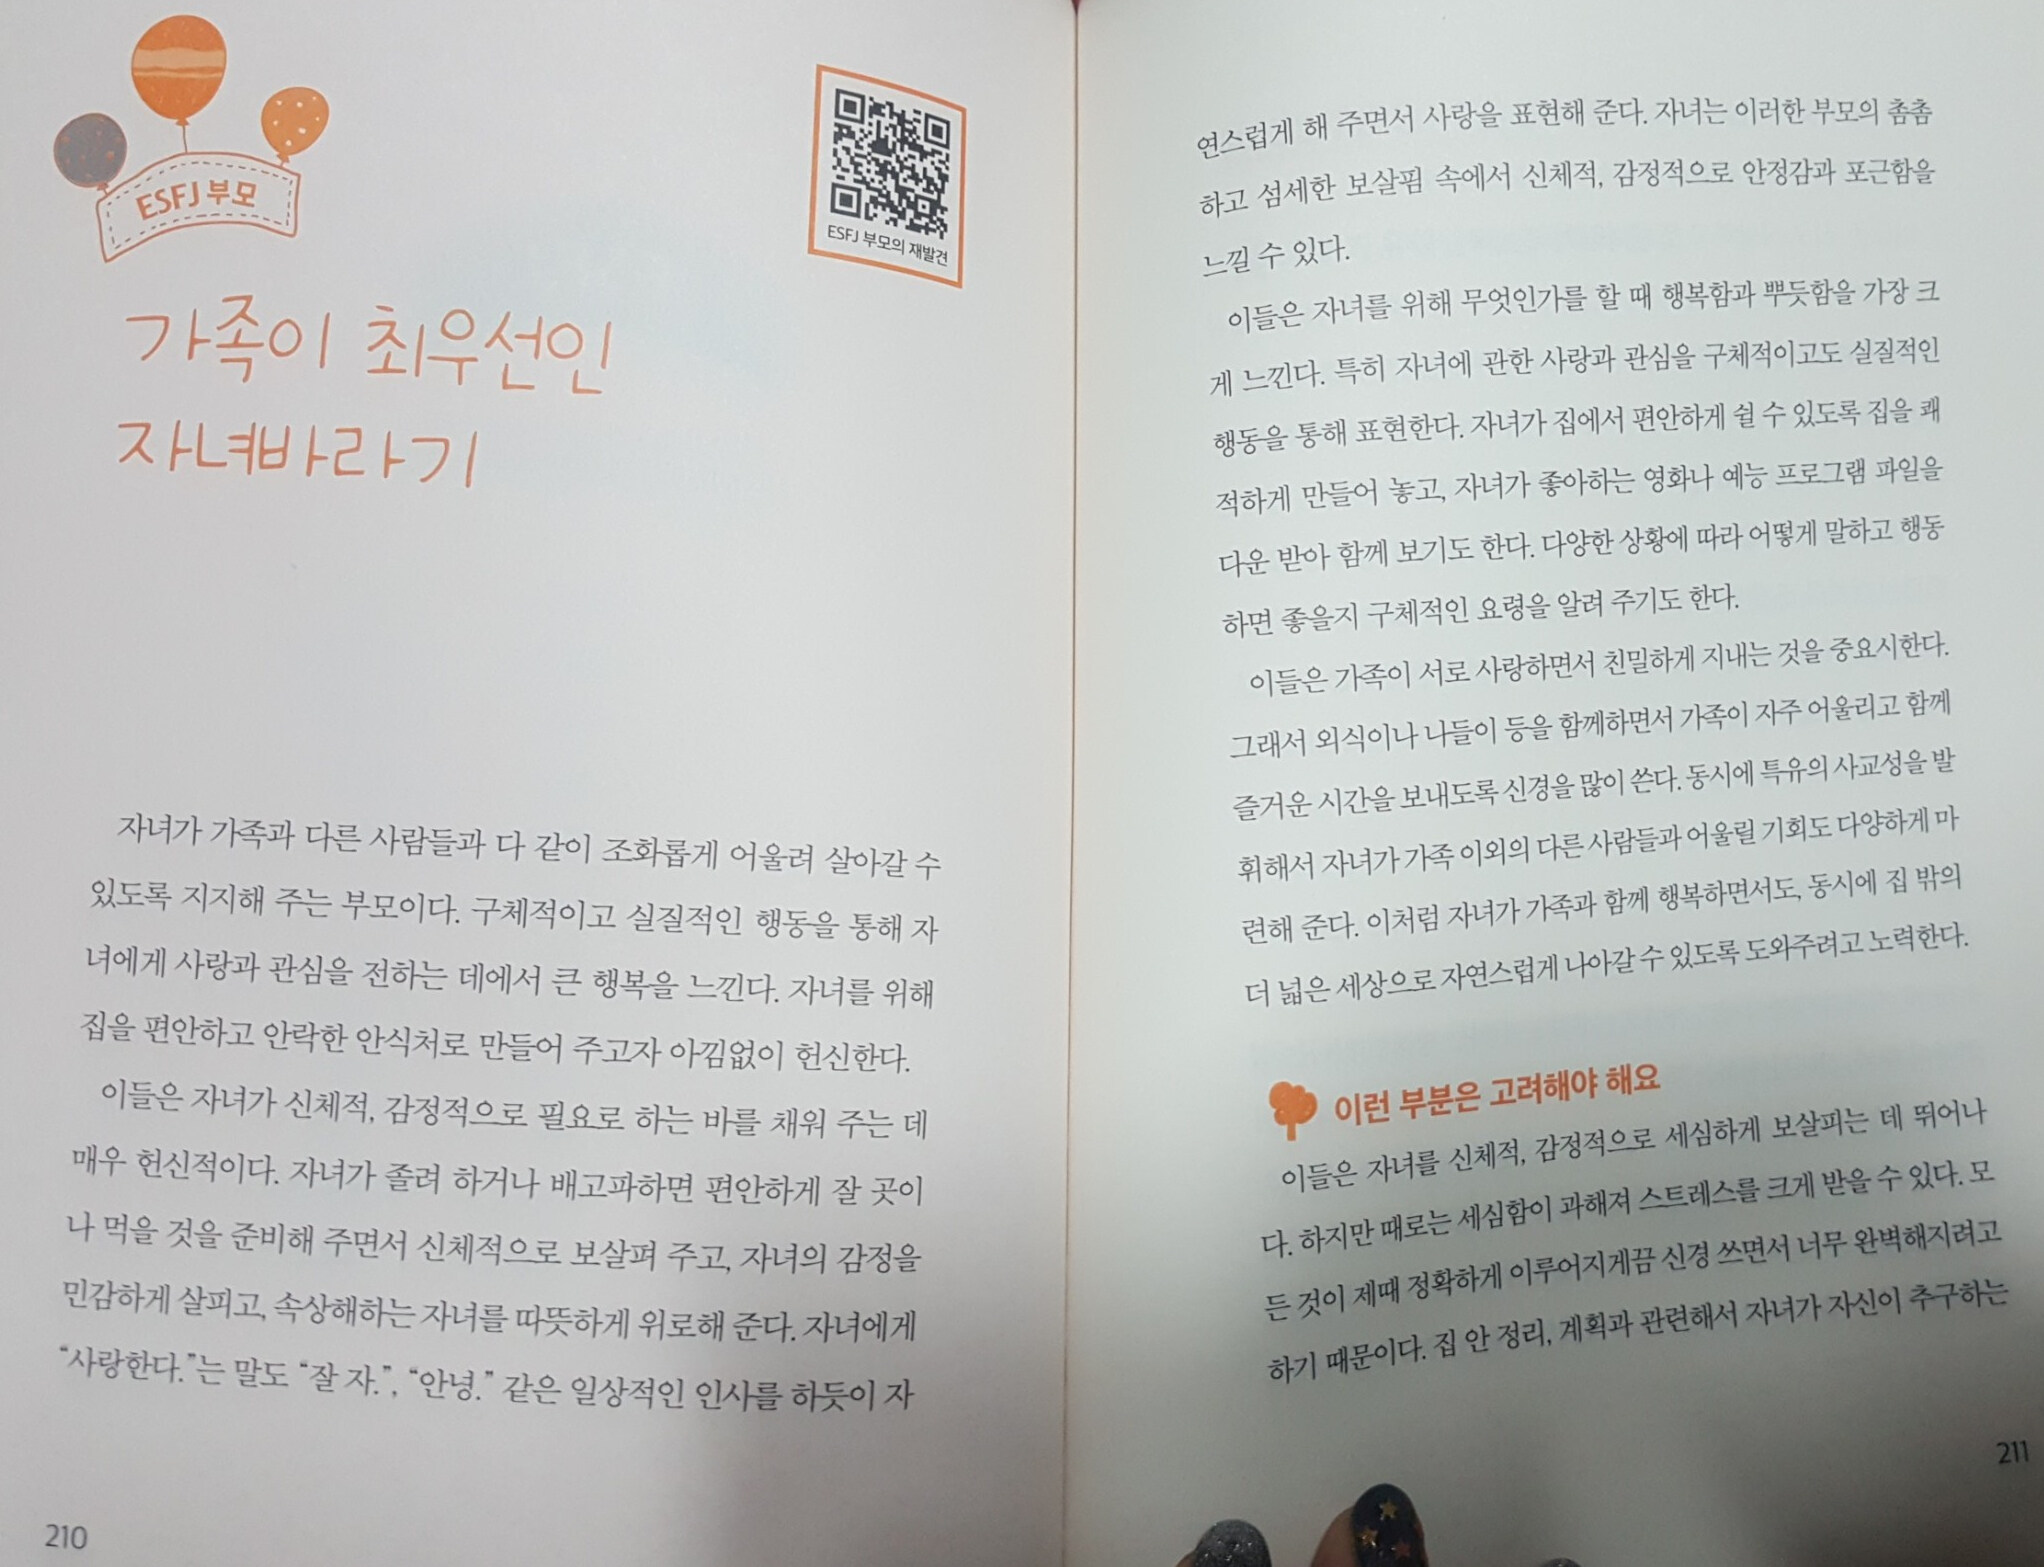 ESFJ 부모
ESFJ 부모의 재발견
가족이 최우선인
자녀바라기
자녀가 가족과 다른 사람들과 다 같이 조화롭게 어울려 살아갈 수
있도록 지지해 주는 부모이다. 구체적이고 실질적인 행동을 통해 자
녀에게 사랑과 관심을 전하는 데에서 큰 행복을 느낀다. 자녀를 위해
집을 편안하고 안락한 안식처로 만들어 주고자 아낌없이 헌신한다.
이들은 자녀가 신체적, 감정적으로 필요로 하는 바를 채워 주는 데
매우 헌신적이다. 자녀가 졸려 하거나 배고파하면 편안하게 잘 곳이
나 먹을 것을 준비해 주면서 신체적으로 보살펴 주고, 자녀의 감정을
민감하게 살피고, 속상해하는 자녀를 따뜻하게 위로해 준다. 자녀에게
“사랑한다.”는 말도 “잘 자.”, “안녕.” 같은 일상적인 인사를 하듯이 자
210
연스럽게 해 주면서 사랑을 표현해 준다. 자녀는 이러한 부모의 촘촘
하고 섬세한 보살핌 속에서 신체적, 감정적으로 안정감과 포근함을
느낄 수 있다.
이들은 자녀를 위해 무엇인가를 할 때 행복함과 뿌듯함을 가장 크
게 느낀다. 특히 자녀에 관한 사랑과 관심을 구체적이고도 실질적인
행동을 통해 표현한다. 자녀가 집에서 편안하게 쉴 수 있도록 집을 쾌
적하게 만들어 놓고, 자녀가 좋아하는 영화나 예능 프로그램 파일을
다운 받아 함께 보기도 한다. 다양한 상황에 따라 어떻게 말하고 행동
하면 좋을지 구체적인 요령을 알려 주기도 한다.
이들은 가족이 서로 사랑하면서 친밀하게 지내는 것을 중요시한다.
그래서 외식이나 나들이 등을 함께하면서 가족이 자주 어울리고 함께
즐거운 시간을 보내도록 신경을 많이 쓴다. 동시에 특유의 사교성을 발
휘해서 자녀가 가족 이외의 다른 사람들과 어울릴 기회도 다양하게 마
련해 준다. 이처럼 자녀가 가족과 함께 행복하면서도, 동시에 집 밖의
더 넓은 세상으로 자연스럽게 나아갈 수 있도록 도와주려고 노력한다.
이런 부분은 고려해야 해요
이들은 자녀를 신체적, 감정적으로 세심하게 보살피는 데 뛰어나
다. 하지만 때로는 세심함이 과해져 스트레스를 크게 받을 수 있다. 모
든 것이 제때 정확하게 이루어지게끔 신경 쓰면서 너무 완벽해지려고
하기 때문이다. 집 안 정리, 계획과 관련해서 자녀가 자신이 추구하는
211